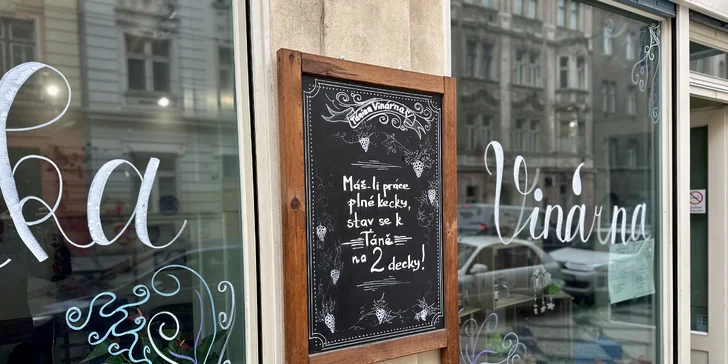 ka
Tánina Vinárna
Máš-li práce
plné kecky,
stav se k
Táně
na 2 decky!
Vinárna